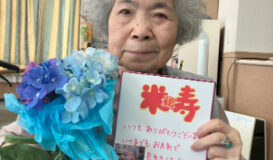 米寿
祝
いつも ありがとうございます
いつまでも お元気で